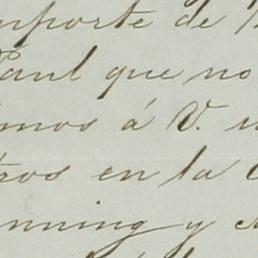 mporte de
Paul que no
mos á V.
tros en la
nning y